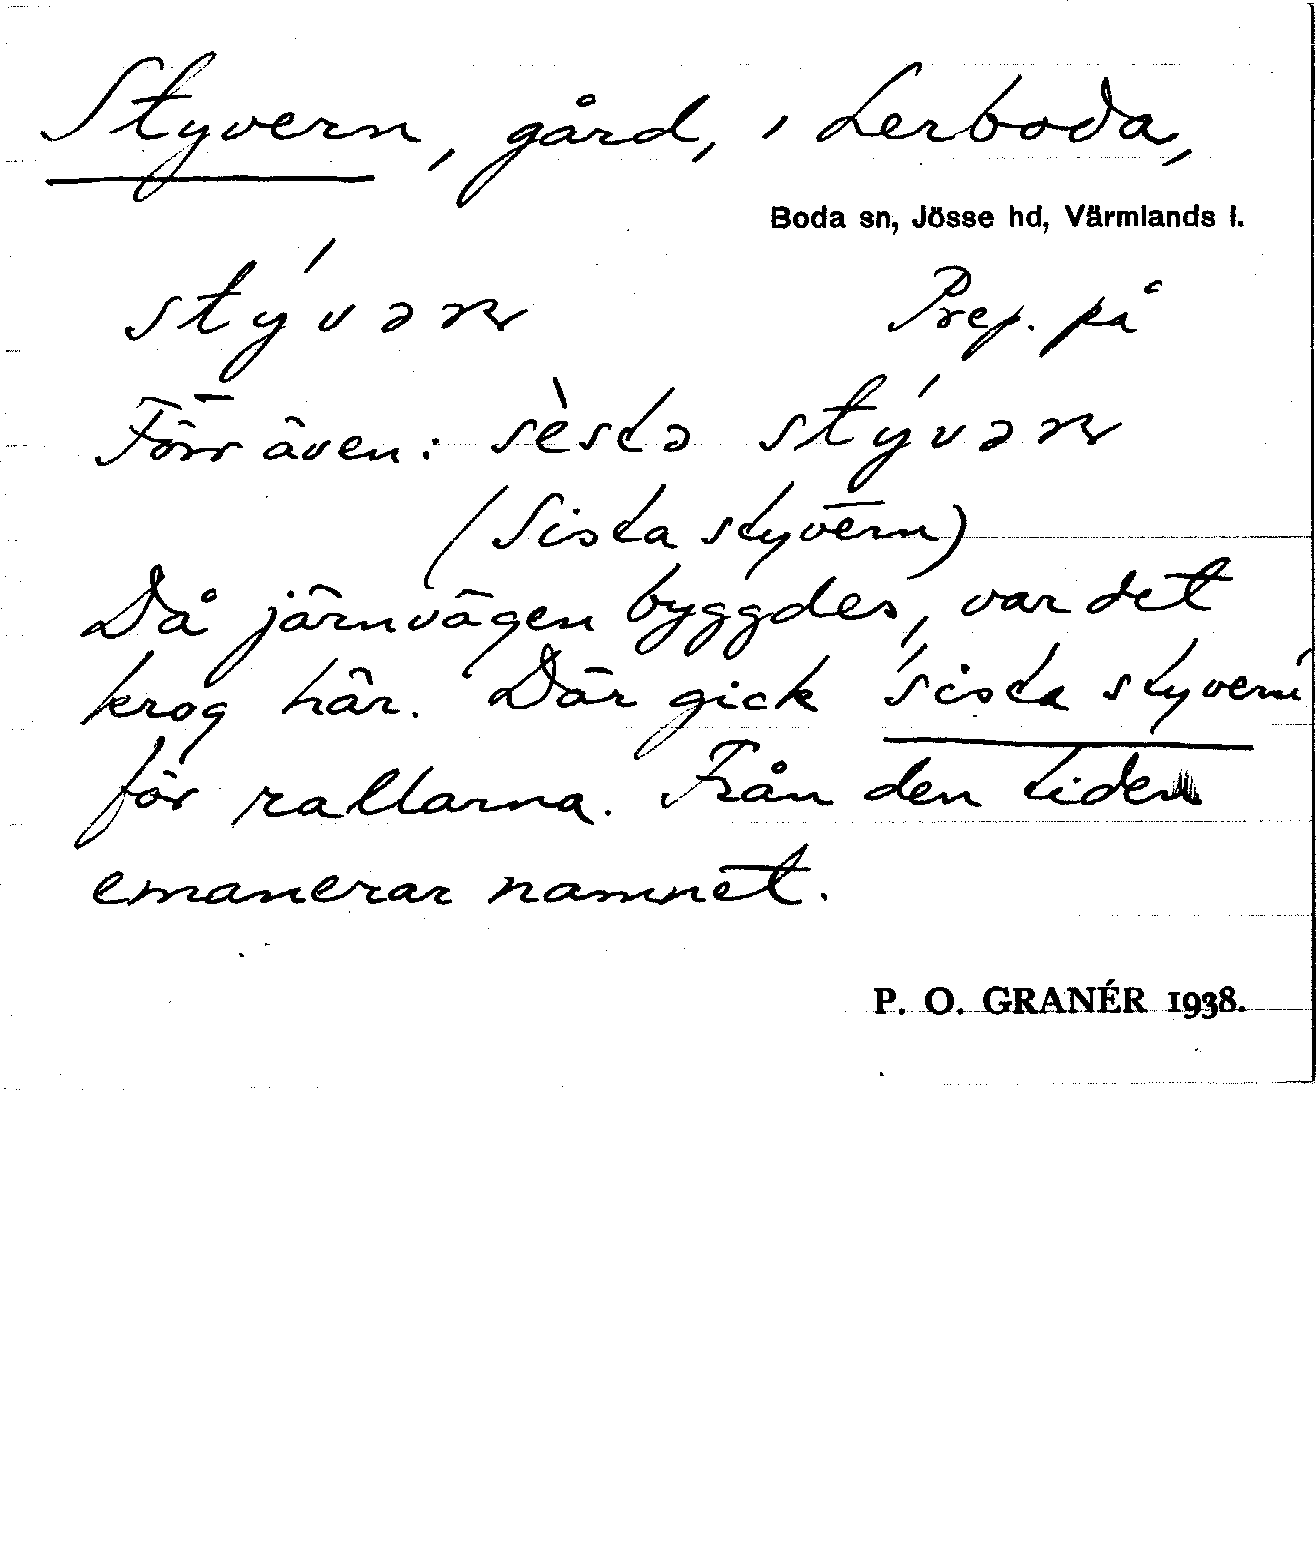 Styvern, gård, i Lerboda,
Boda sn, Jösse hd, Värmlands l.
stývəɳ Prep. på
Förr även: sèsta stývəɳ
(Sista styvern)
Då järnvägen byggdes, var det
krog här. Där gick 'sista styvern'
för rallarna. Från den tiden
emanerar namnet.
P. O. GRANÉR 1938.